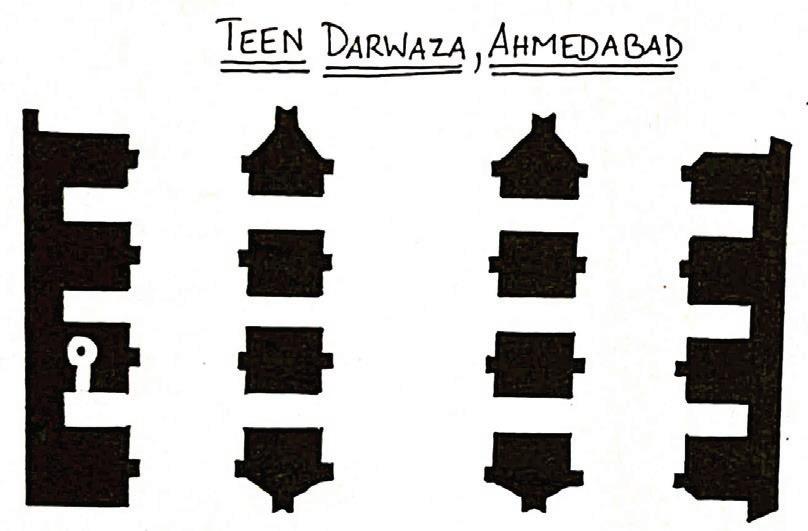 TEEN DARWAZA, AHMEDABAD